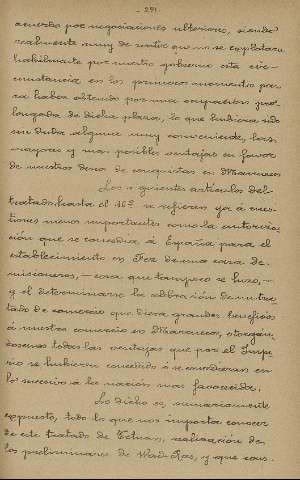 - 291 -
acuerdo por negociaciones ulteriores, siendo
realmente muy de sentir que no se explotara
habilmente por nuestro gobierno esta cir-
cunstancia en los primeros momentos para
haber obtenido por una ocupacion pro-
longada de dicha plaza, lo que hubiera sido
sin duda alguna muy conveniente, las
mayores y mas posibles ventajas en favor
de nuestros deseos de conquistas en Marruecos
Los siguientes artículos del
tratado, hasta el 16º se refieren ya á cues-
tiones menos importantes como la autoriza-
ción que se concedia á España para el
establecimiento en Fez de una casa de
misioneros, — cosa que tampoco se hizo, —
y el determinarse la celebración de un tra-
tado de comercio que diera grandes beneficios
á nuestro comercio en Marruecos, otorgán-
dosenos todas las ventajas que por el Impe-
rio se hubieran concedido ó se concedieran en
lo sucesivo á la nación mas favorecida.
Lo dicho es, sumariamente
expuesto, todo lo que nos importa conocer
de este tratado de Tetuan, realización de
los preliminares de Wad-Ras, y que cons-